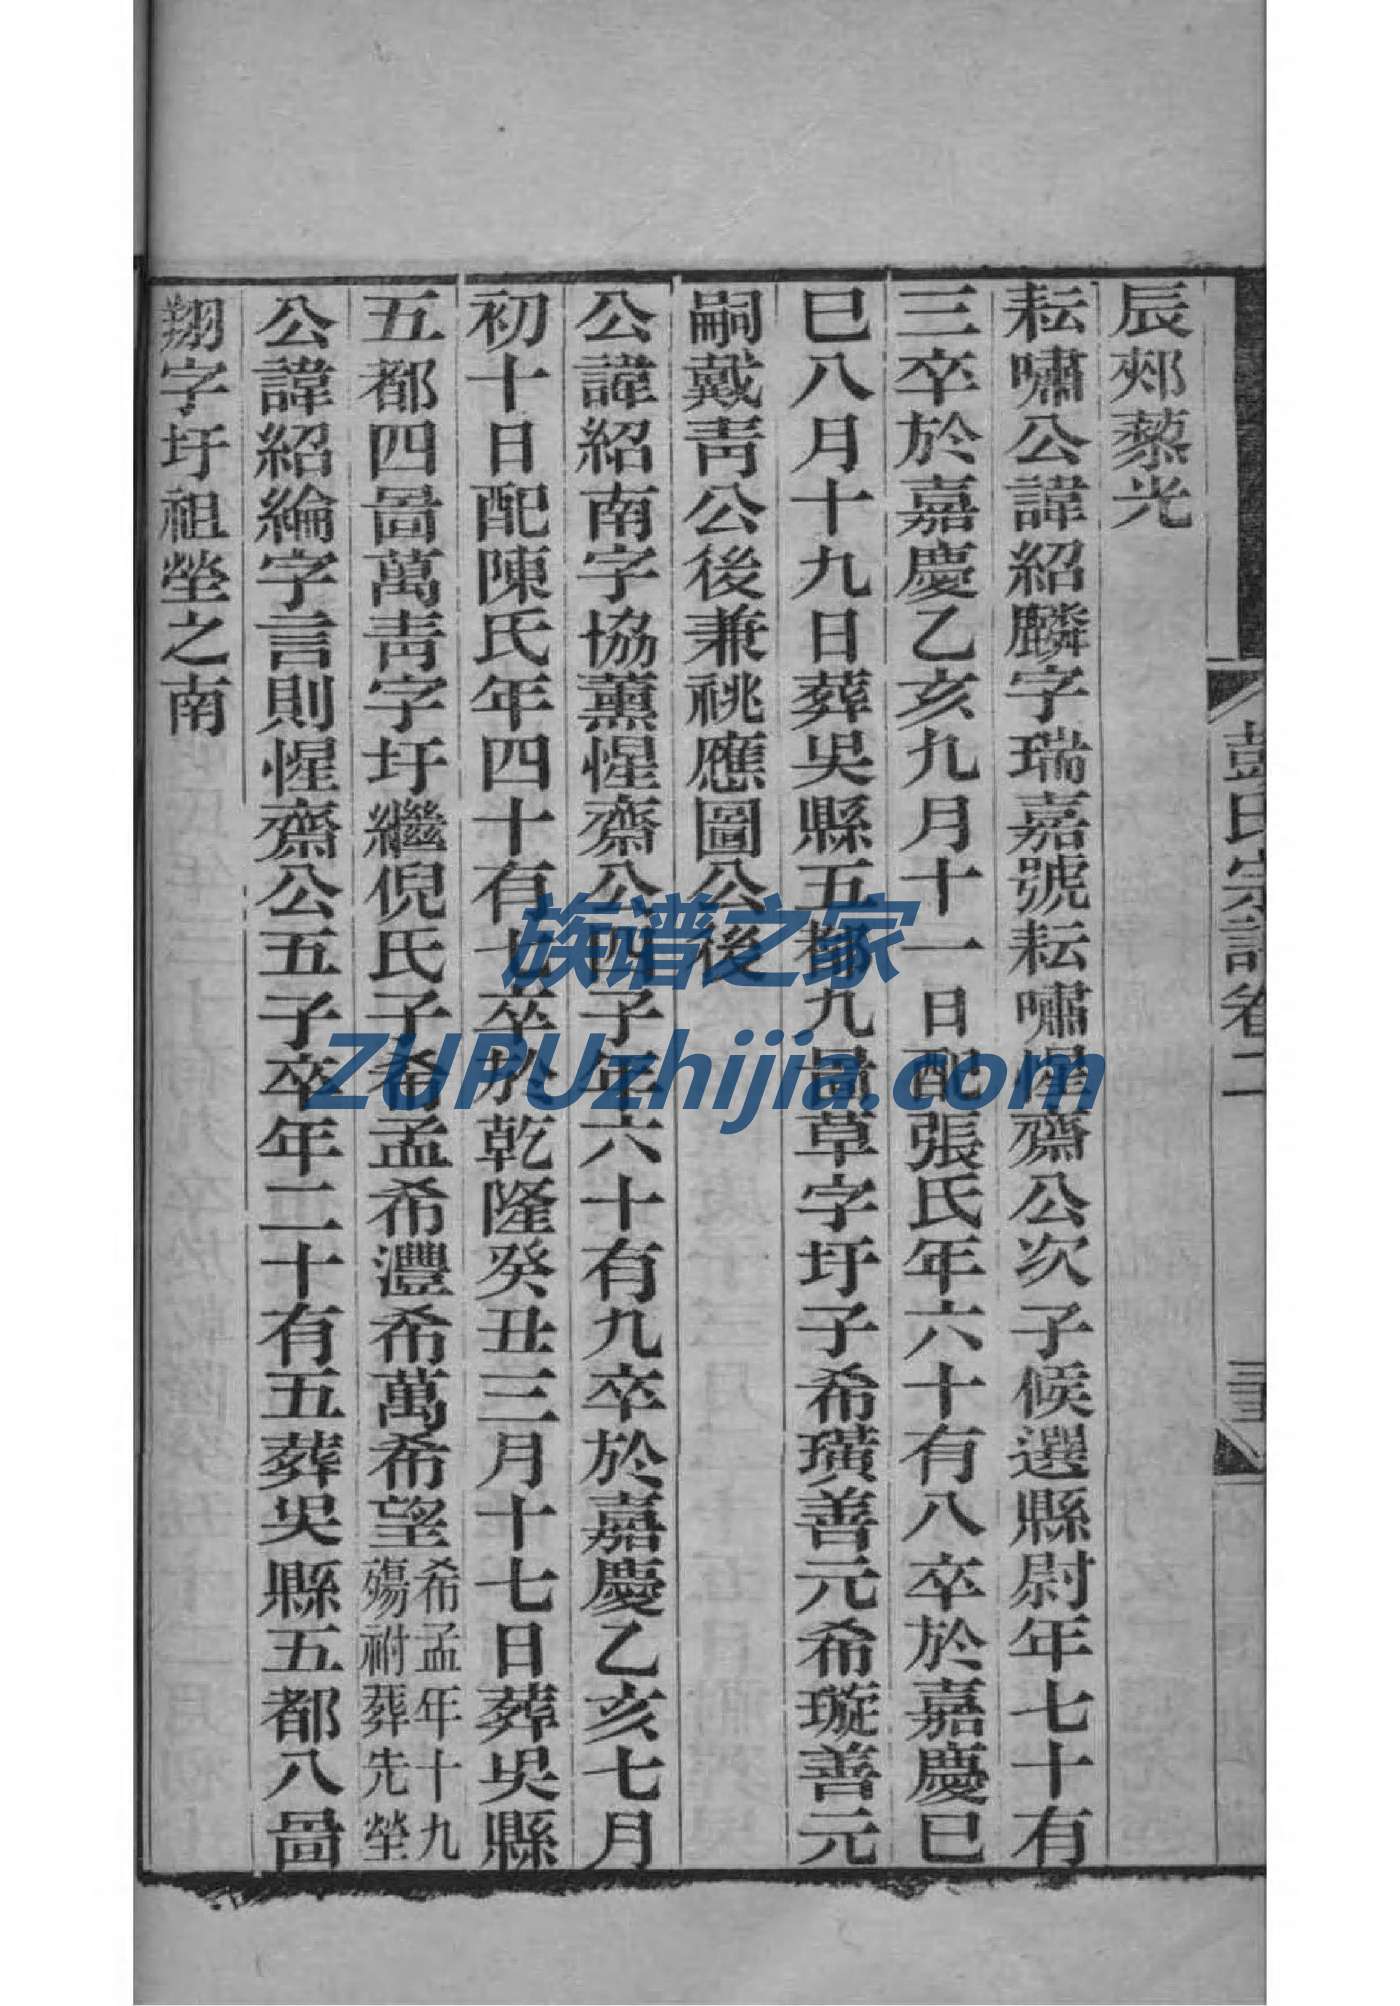 辰郟藜光
耘嘯公諱紹麟字瑞嘉號耘嘯惺齋公次子候選縣尉年七十有
三卒於嘉慶乙亥九月十一日配張氏年六十有八卒於嘉慶己
巳八月十九日葬吳縣五都九啚草字圩子希璜善元希璇善元
嗣戴靑公後兼祧應圖公後
公諱紹南字協薰惺齋公四子年六十有九卒於嘉慶乙亥七月
初十日配陳氏年四十有七卒於乾隆癸丑三月十七日葬吳縣
五都四啚萬靑字圩繼倪氏子希孟希灃希萬希望
希孟年十九
殤祔葬先塋
公諱紹綸字言則惺齋公五子卒年二十有五葬吳縣五都八啚
翔字圩祖塋之南
彭氏宗譜卷二
族谱之家
ZUPUzhijia.com